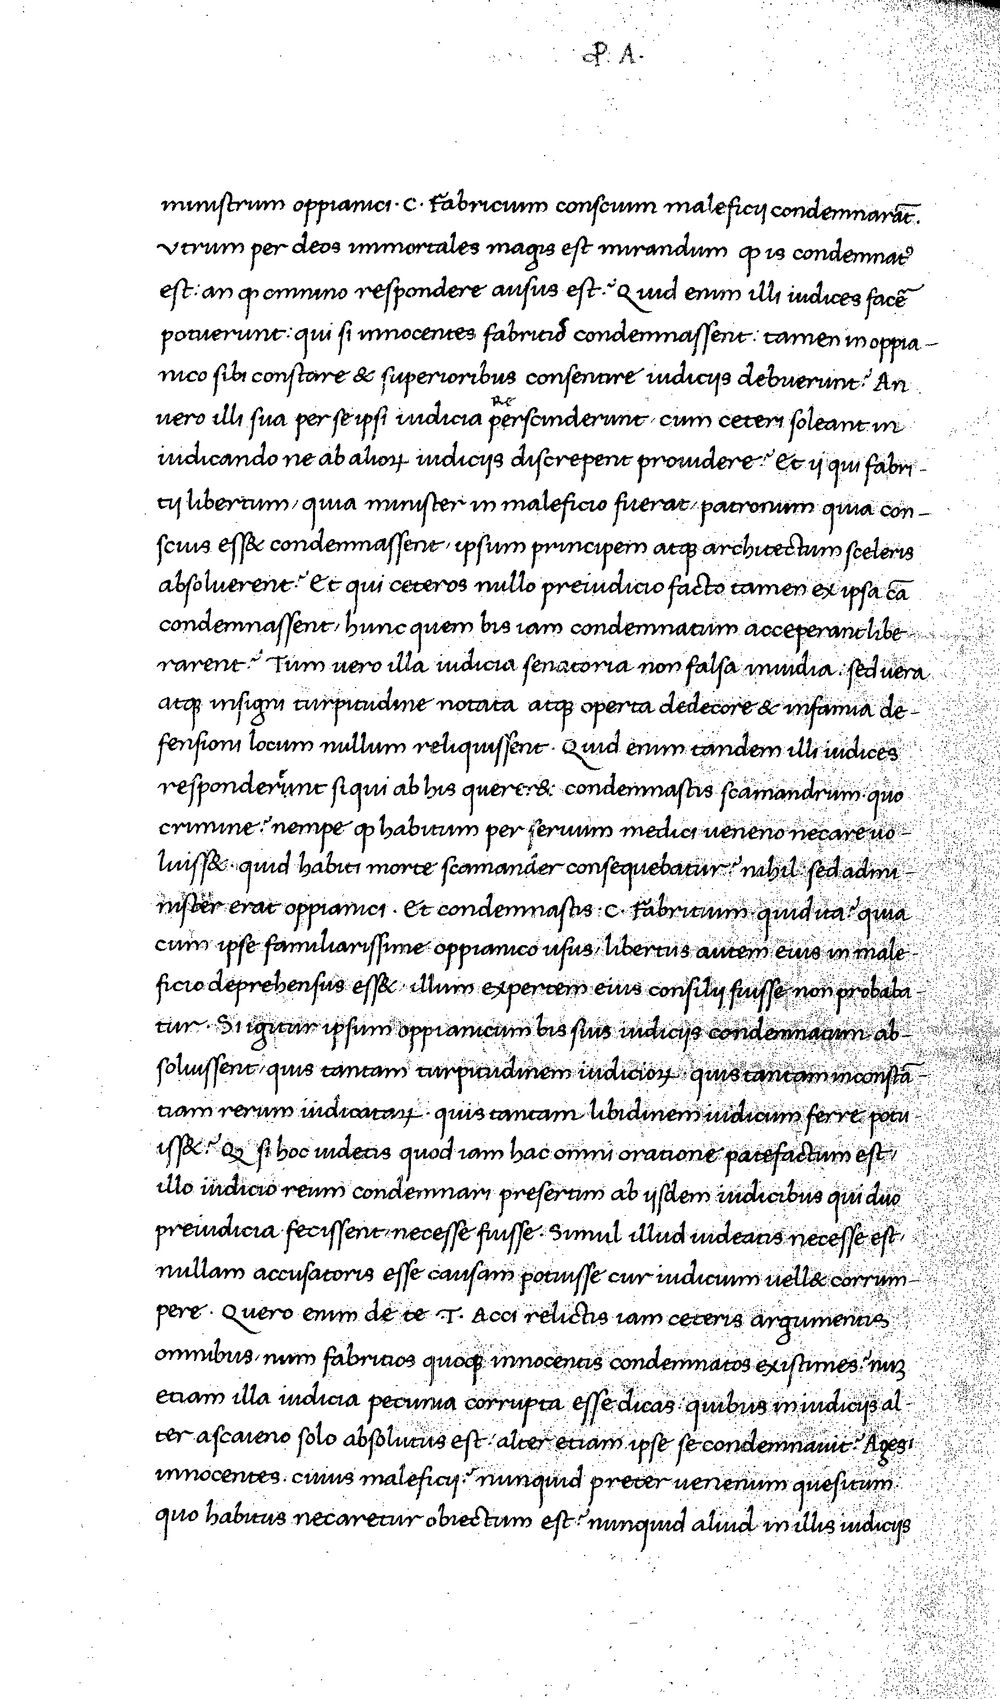 P. A.
ministrum oppianici · C · Fabricium conscium maleficij condemnarāt.
Vtrum per deos immortales magis est mirandum ꝙ is condemnatꝰ
est: an ꝙ omnino respondere ausus est? Quid enim illi iudices facē
potuerunt: qui si innocentes fabritiōs condemnassent: tamen in oppia-
nico sibi constare & superioribus consentire iudicijs debuerunt? An
vero illi sua per se ipsi iudicia perscinderunt, cum ceteri soleant in
iudicando ne ab alioꝝ iudicijs discrepent prouidere? Et ij qui fabri-
tij libertum, quia minister in maleficio fuerat, patronum quia con-
scius ess& condemnassent, ipsum principem atqꝫ architectum sceleris
absoluerent? Et qui ceteros nullo preiudicio facto tamen ex ipsa cā
condemnassent, hunc quem bis iam condemnatum acceperant libe-
rarent? Tum uero illa iudicia senatoria non falsa inuidia, sed uera
atqꝫ insigni turpitudine notata atqꝫ operta dedecore & infamia de-
fensioni locum nullum reliquissent. Quid enim tandem illi iudices
responderent si qui ab his querer&: condemnastis scamandrum quo
crimine? nempe ꝙ habitum per seruum medici ueneno necare uo-
luiss&. quid habiti morte scamander consequebatur? nihil sed admi-
nister erat oppianici. Et condemnastis · C · Fabritium quid ita? quia
cum ipse familiarissime oppianico usus, libertus autem eius in male-
ficio deprehensus ess&, illum expertem eius consilij fuisse non probaba-
tur. Si igitur ipsum oppianicum bis suis iudicijs condemnatum ab-
soluissent, quis tantam turpitudinem iudicioꝝ quis tantam inconstā-
tiam rerum iudicataꝝ. quis tantam libidinem iudicum ferre potu-
iss&? Qꝫ si hoc uidetis quod iam hac omni oratione patefactum est,
illo iudicio reum condemnari presertim ab ijsdem iudicibus qui duo
preiudicia fecissent, necesse fuisse. Simul illud uideatis necesse est,
nullam accusatoris esse causam potuisse cur iudicium uell& corrum-
pere. Quero enim de te · T · Acci relictis iam ceteris argumentis
omnibus, num fabritios quoqꝫ innocentis condemnatos existimes? nūꝫ
etiam illa iudicia pecunia corrupta esse dicas quibus in iudicijs al-
ter a scaieno solo absolutus est, alter etiam ipse se condemnauit? Age si
innocentes. cuius maleficij? nunquid preter uenenum quesitum
quo habitus necaretur obiectum est? nunquid aliud in illis iudicijs